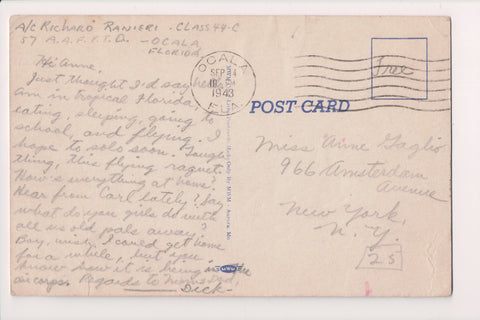 A/C RICHARD RANIERI - CLASS 44-C
57 A.A.F.F.T.D. - OCALA
FLORIDA
Hi Anne,
Just thought I'd say hello
Am in tropical Florida,
eating, sleeping, going to
school, and flying. I
hope to solo soon. Tough
thing, this flying raquet.
How's everything at home?
Hear from Carl lately? Say
what do you girls do with
all us old pals away?
Boy, wish I could get home
for a while, but you
know how it is being in the
air corps. Regards to Mom & Dad,
Dick -
OCALA
SEP
1943
FLA.
Free
POST CARD
Miss Anne Gaglio
966 Amsterdam
Avenue
New York,
N.Y.
25